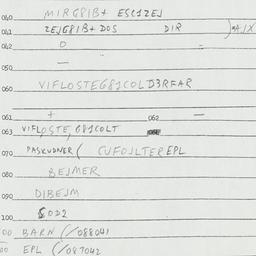 040 MIRG81B+ ESC1ZEJ
041 ZEJG81B+DOS DIR
042 O -
050 —
060 VIFLOSTEG81COLD3RFAR
061 + 062 -
063 VIFLOSTE, G81COLT
070 PASKUDNER( CUFOJLTEREPL
080 BEJMER
090 DIBEJM
100 GOD2
00 BARN (/088041
00 EPL (/087042